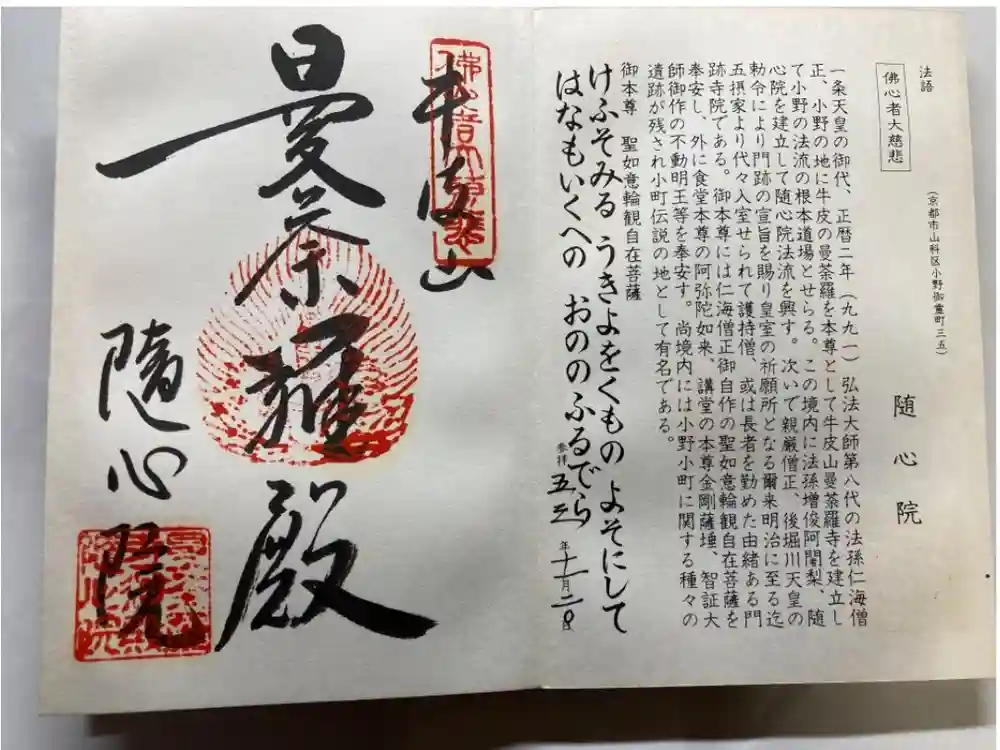 法語
佛心者大慈悲
(京都市山科区小野御霊町三五)
随心院
一条天皇の御代、正暦二年(九九一)弘法大師第八代の法孫仁海僧
正、小野の地に牛皮の曼荼羅を本尊として牛皮山曼荼羅寺を建立し
て小野の法流の根本道場とせらる。この境内に法孫増俊阿闍梨、随
心院を建立して随心院法流を興す。次いで親厳僧正、後堀川天皇の
勅令により門跡の宣旨を賜り皇室の祈願所となる爾来明治に至る迄
五摂家より代々入室せられて護持僧、或は長者を勤めた由緒ある門
跡寺院である。御本尊には仁海僧正御自作の聖如意輪観自在菩薩を
奉安し、外に食堂本尊の阿弥陀如来、講堂の本尊金剛薩埵、智証大
師御作の不動明王等を奉安す。尚境内には小野小町に関する種々の
遺跡が残され小町伝説の地として有名である。
御本尊 聖如意輪観自在菩薩
けふそみる うきよをくもの よそにして
はなもいくへの おののふるでら
参拝 五三年十一月二日
牛皮山
曼荼羅殿
隨心院